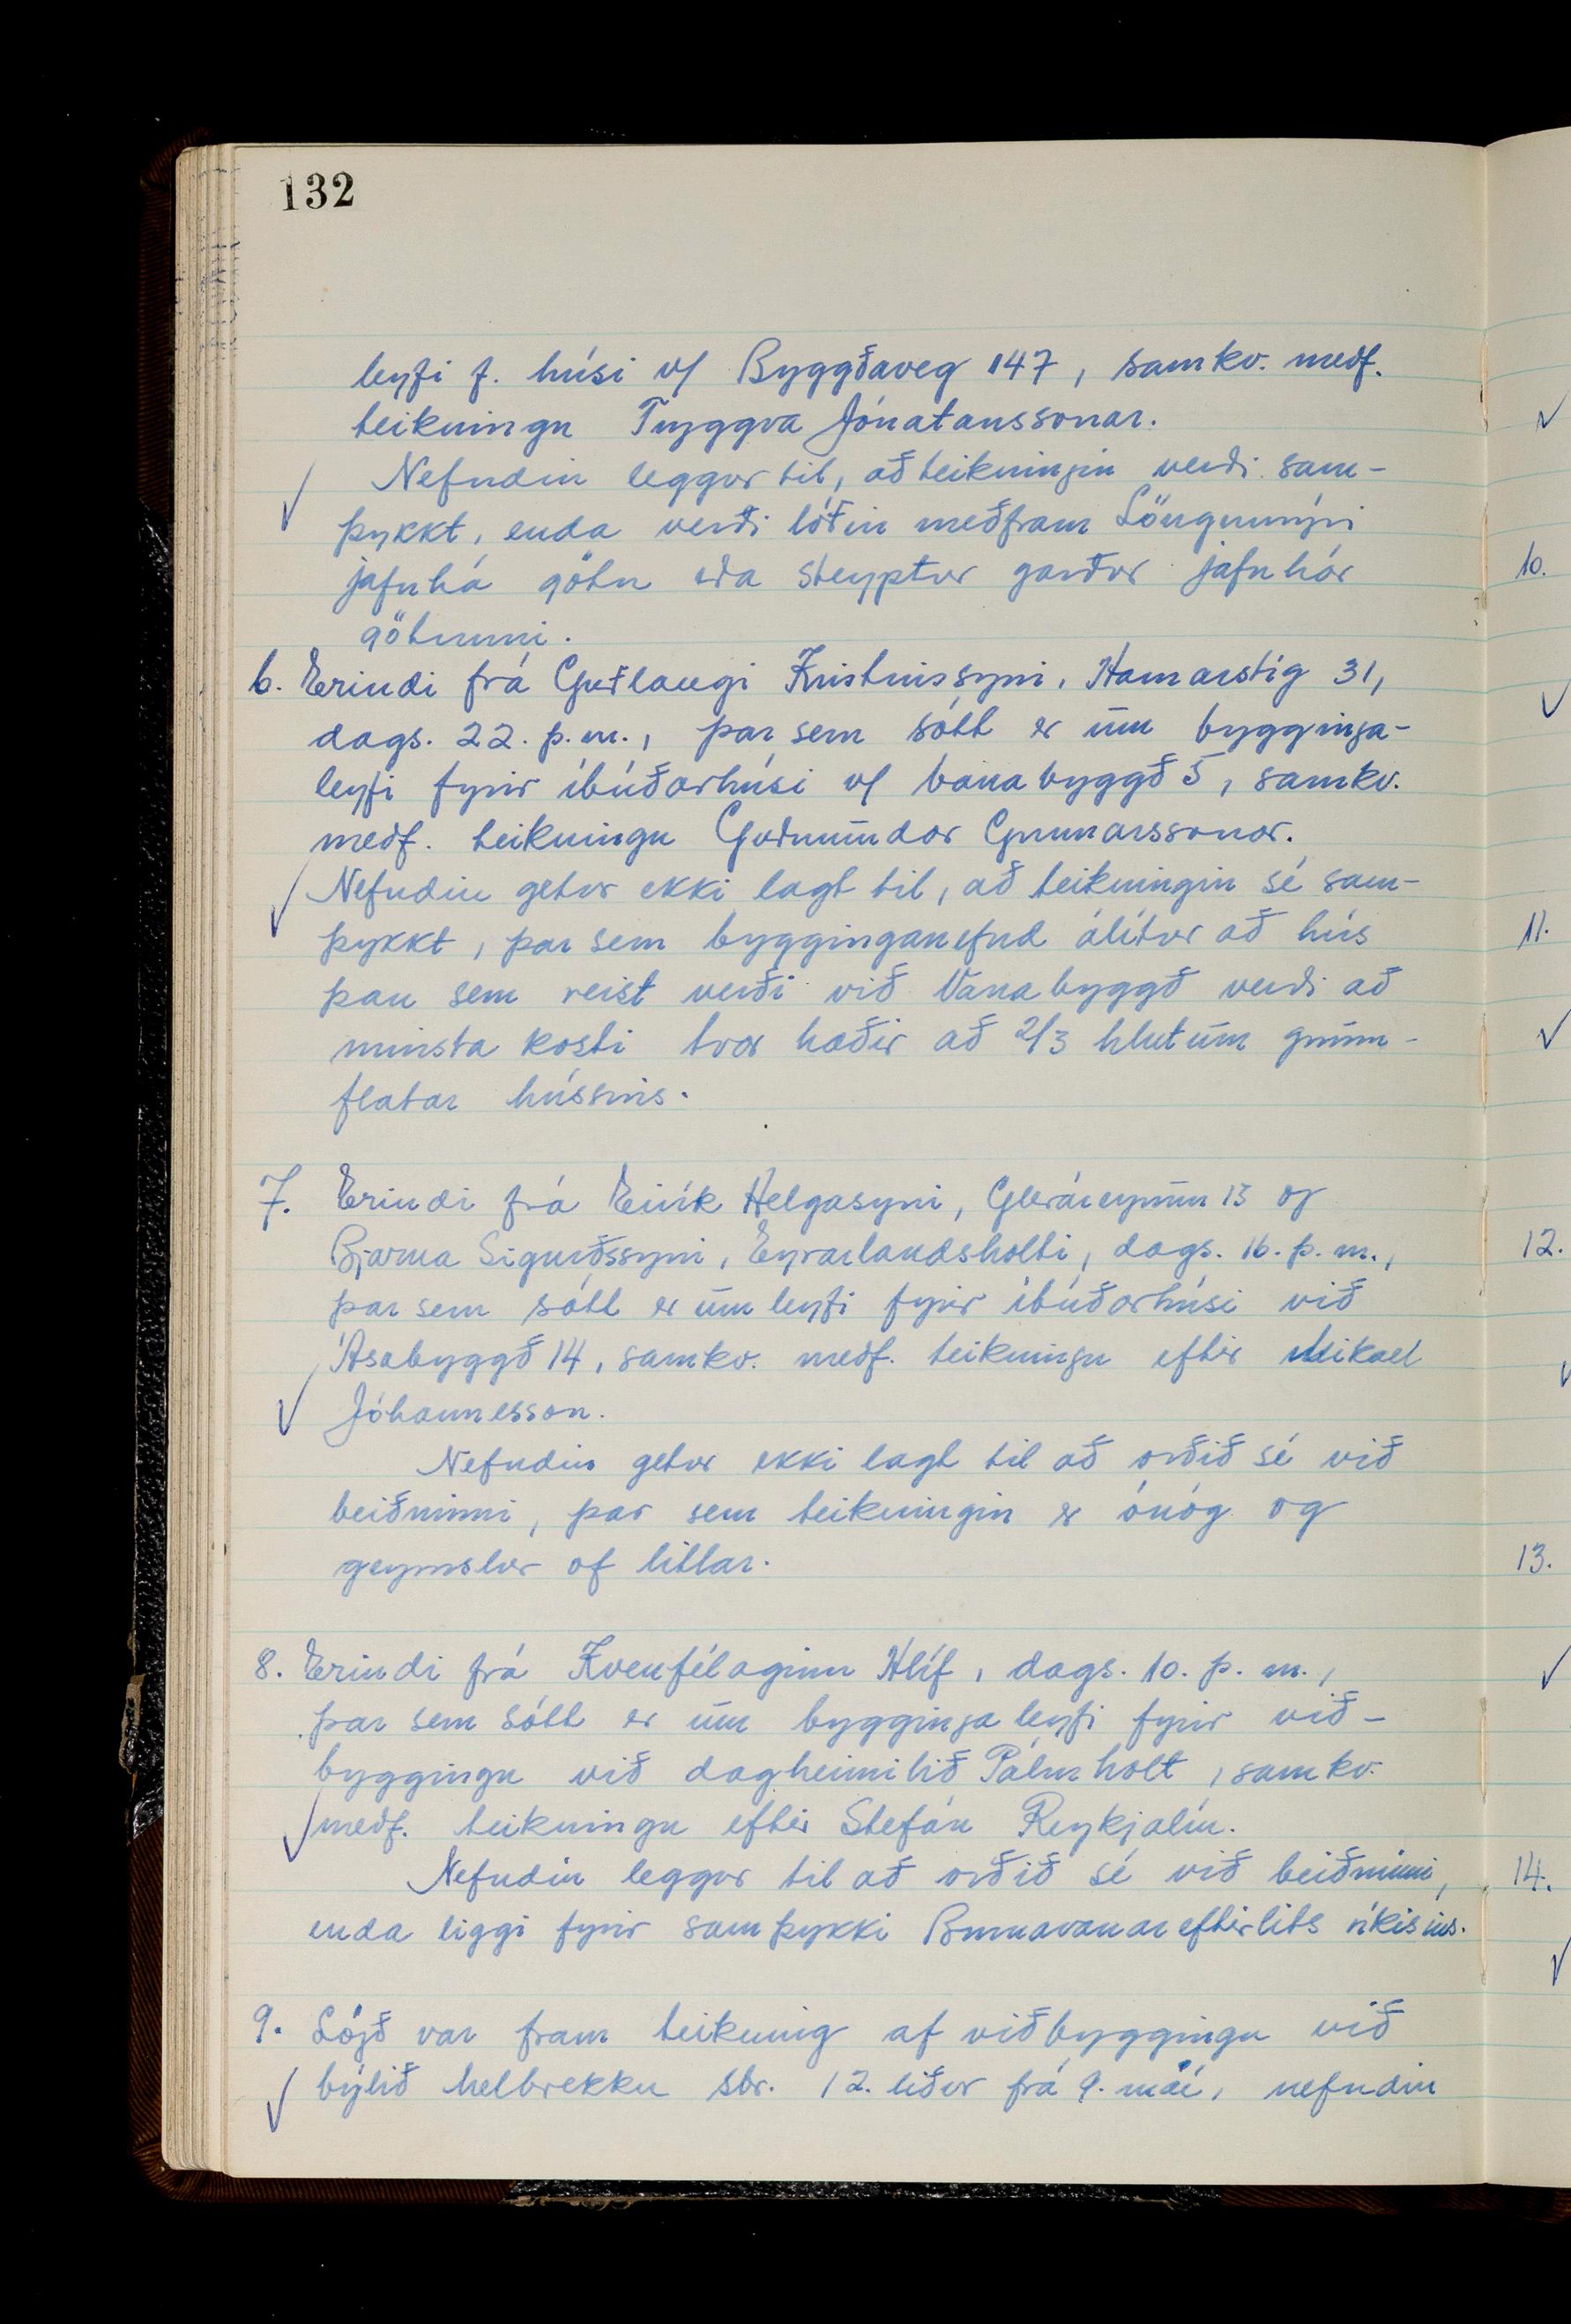 132
leyfi f. húsi v/ Byggðaveg 147, samkv. meðf.
teikningu Tryggva Jónatanssonar.
Nefndin leggur til, að teikningin verði sam-
þykkt, enda verði lóðin meðfram Löngumýri
jafnhá götu eða steyptur garður jafnhár
götunni.
6. Erindi frá Guðlaugi Kristinssyni, Hamarstíg 31,
dags. 22. þ.m., þar sem sótt er um bygginga-
leyfi fyrir íbúðarhúsi v/ Vanabyggð 5, samkv.
meðf. teikningu Guðmundar Gunnarssonar.
Nefndin getur ekki lagt til, að teikningin sé sam-
þykkt, þar sem bygginganefnd álítur að hús
þau sem reist verði við Vanabyggð verði að
minsta kosti tvær hæðir að 2/3 hlutum grunn-
flatar hússins.
7. Erindi frá Eirík Helgasyni, Gleráreyrum 13 og
Bjarna Sigurðssyni, Eyrarlandsholti, dags. 16. þ.m.,
þar sem sótt er um leyfi fyrir íbúðarhúsi við
Ásabyggð 14, samkv. meðf. teikningu eftir Mikael
Jóhannesson.
Nefndin getur ekki lagt til að orðið sé við
beiðninni, þar sem teikningin er ónóg og
geymslur of litlar.
8. Erindi frá Kvenfélaginu Hlíf, dags. 10. þ.m.,
þar sem sótt er um byggingaleyfi fyrir við-
byggingu við dagheimilið Pálmholt, samkv.
meðf. teikningu eftir Stefán Reykjalín.
Nefndin leggur til að orðið sé við beiðninni,
enda liggi fyrir samþykki Brunavanareftirlits ríkisins.
9. Lögð var fram teikning af viðbyggingu við
býlið Melbrekku sbr. 12. liður frá 9. maí, nefndin
10.
11.
12.
13.
14.